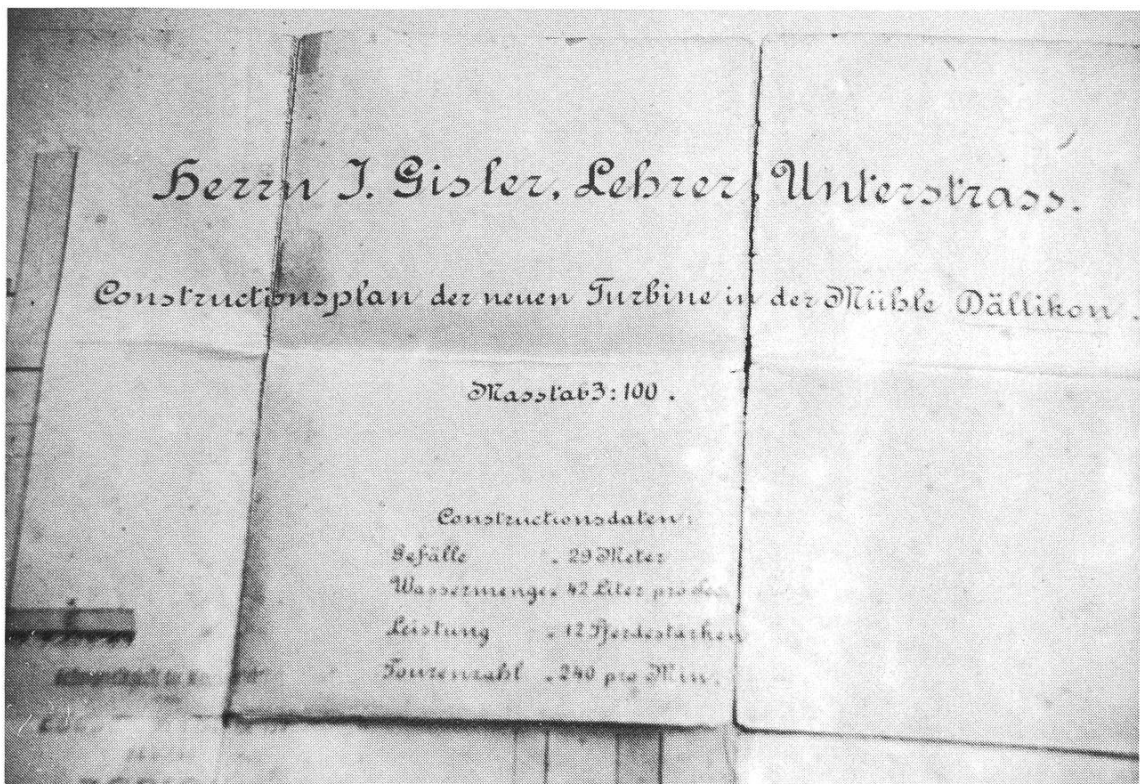 Herrn J. Gisler, Lehrer, Unterstrass.
Constructionsplan der neuen Turbine in der Mühle Dällikon.
Masstab 3:100.
Constructionsdaten:
Gefälle = 29 Meter
Wassermenge = 42 Liter pro Sec.
Leistung = 12 Pferdestärken
Tourenzahl = 240 pro Min.